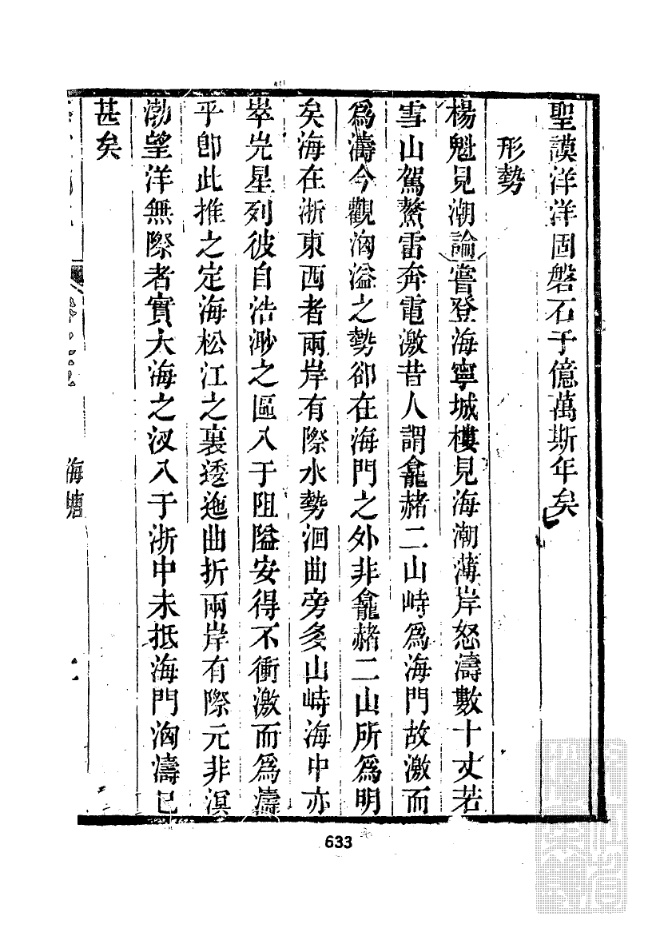 聖謨洋洋固磐石于億萬斯年矣
形勢
楊魁見潮論嘗登海寧城樓見海潮薄岸怒濤數十丈若
雪山駕鰲雷奔電激昔人謂龕赭二山峙爲海門故激而
爲濤今觀洶溢之勢卻在海門之外非龕赭二山所爲明
矣海在浙東西者兩岸有際水勢洄曲旁多山峙海中亦
崒屼星列彼自浩渺之區入于阻隘安得不衝激而爲濤
乎卽此推之定海松江之裏逶迤曲折兩岸有際元非溟
渤望洋無際者實大海之汊入于浙中未抵海門洶濤已
甚矣
海塘
633